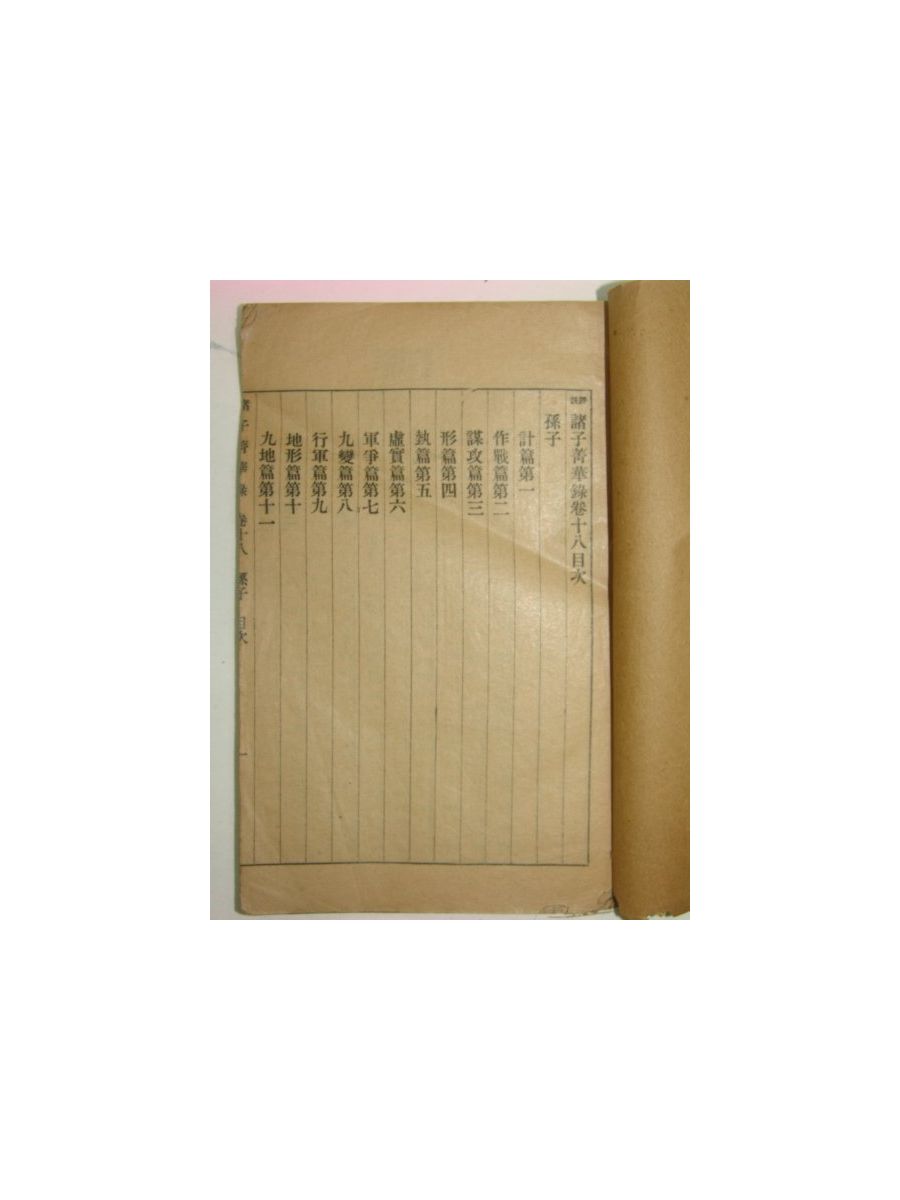 評註諸子菁華錄卷十八目次
孫子
計篇第一
作戰篇第二
謀攻篇第三
形篇第四
埶篇第五
虛實篇第六
軍爭篇第七
九變篇第八
行軍篇第九
地形篇第十
九地篇第十一
諸子菁華錄 卷十八 孫子 目次 一